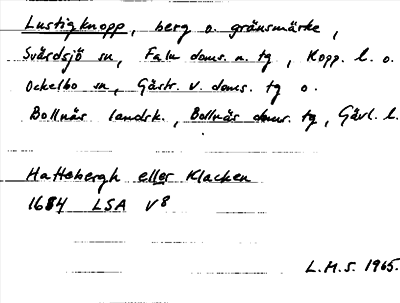 Lustigknopp, berg o. gränsmärke,
Svärdsjö sn, Falu doms. n. tg, Kopp. l. o.
Ockelbo sn, Gästr. v. doms. tg o.
Bollnäs landsk., Bollnäs doms. tg, Gävl. l.
Hattebergh eller Klacken
1684 LSA V8
L.M.S. 1965.